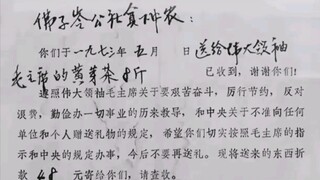 佛子岭公社真神农：
你们于一九七三年五月　日送给伟大领袖
毛主席的黄芽茶8斤　已收到，谢谢你们！
遵照伟大领袖毛主席关于要艰苦奋斗，厉行节约，反对
浪费，勤俭办一切事业的历来教导，和中央关于不准向任何
单位和个人赠送礼物的规定，希望你们切实按照毛主席的指
示和中央的规定办事，今后不要再送礼。现将送来的东西折
款 48 元寄给你们，请查收。